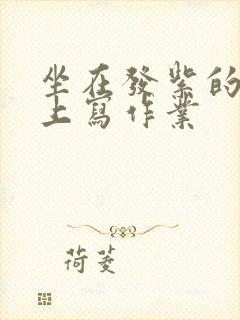 坐在發紫的
上寫作業
荷菱